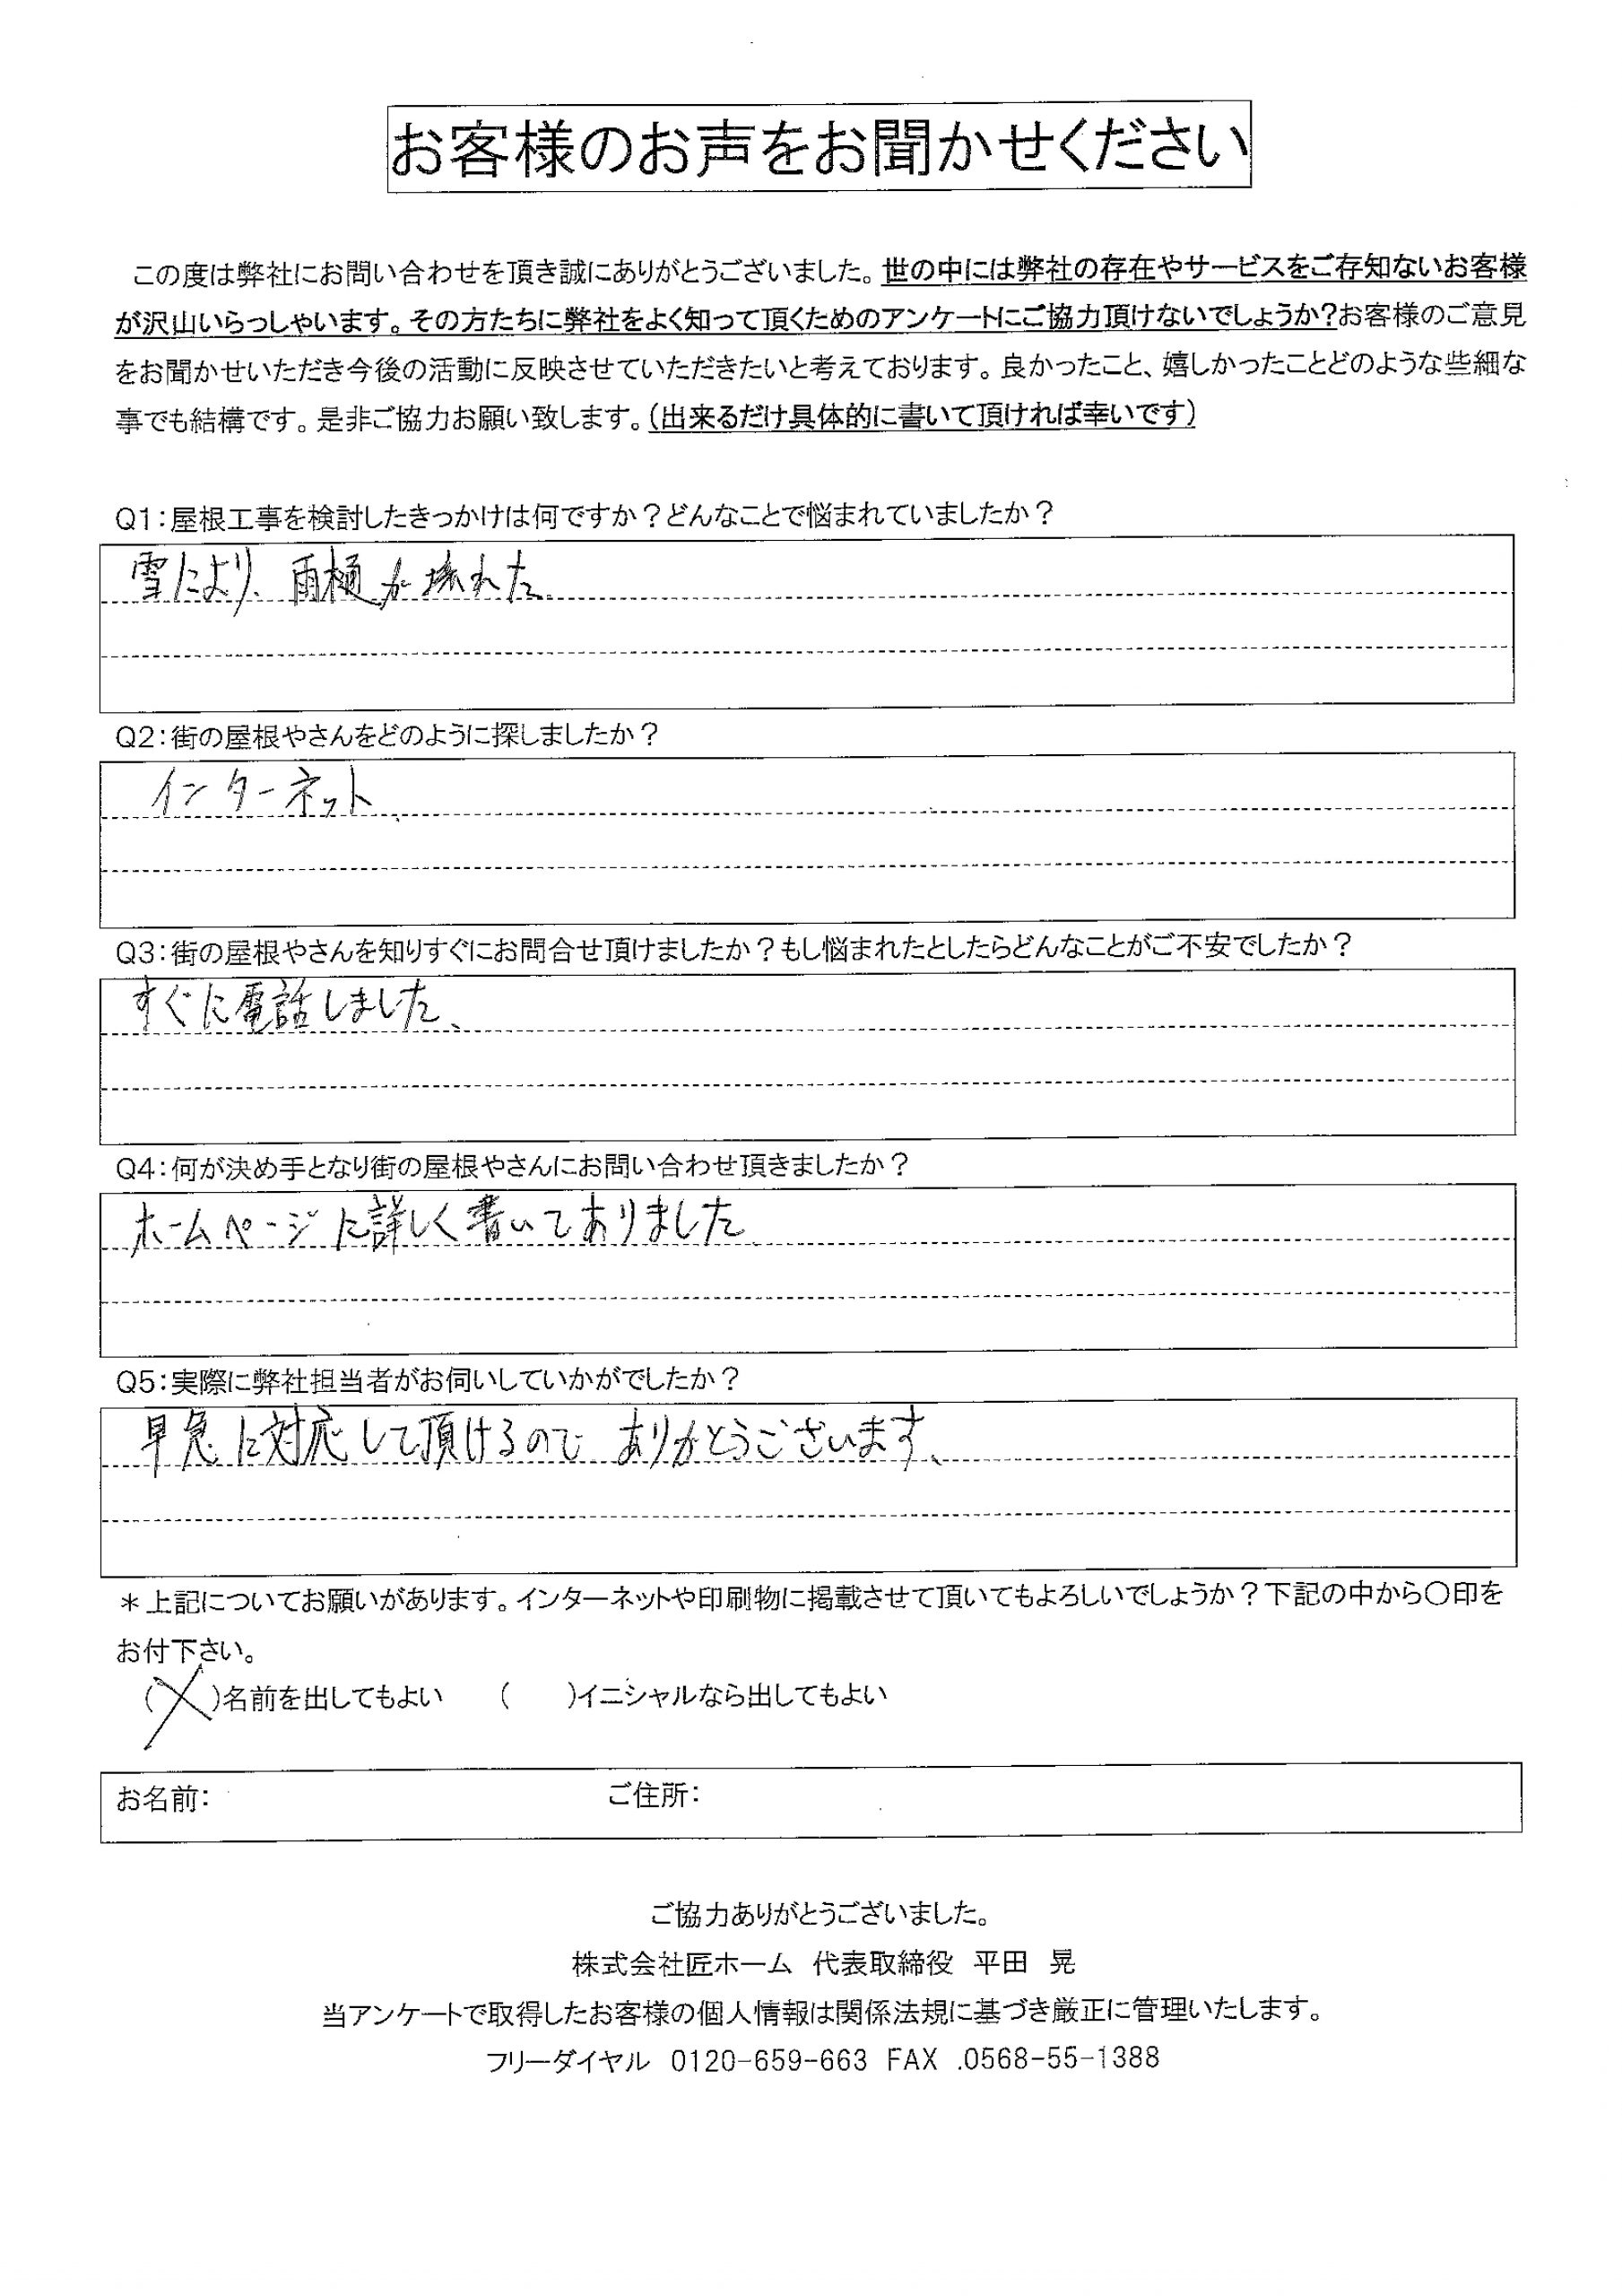 お客様のお声をお聞かせください
この度は弊社にお問い合わせを頂き誠にありがとうございました。世の中には弊社の存在やサービスをご存知ないお客様
が沢山いらっしゃいます。その方たちに弊社をよく知って頂くためのアンケートにご協力頂けないでしょうか?お客様のご意見
をお聞かせいただき今後の活動に反映させていただきたいと考えております。良かったこと、嬉しかったことどのような些細な
事でも結構です。是非ご協力お願い致します。(出来るだけ具体的に書いて頂ければ幸いです)
Q1:屋根工事を検討したきっかけは何ですか?どんなことで悩まれていましたか?
雪により、雨樋が壊れた
Q2:街の屋根やさんをどのように探しましたか?
インターネット
Q3:街の屋根やさんを知りすぐにお問合せ頂けましたか?もし悩まれたとしたらどんなことがご不安でしたか?
すぐに電話しました、
Q4:何が決め手となり街の屋根やさんにお問い合わせ頂きましたか?
ホームページに詳しく書いてありました
Q5:実際に弊社担当者がお伺いしていかがでしたか?
早急に対応して頂けるので ありがとうございます、
*上記についてお願いがあります。インターネットや印刷物に掲載させて頂いてもよろしいでしょうか?下記の中から〇印を
お付下さい。
(╳)名前を出してもよい ( )イニシャルなら出してもよい
お名前: ご住所:
ご協力ありがとうございました。
株式会社匠ホーム 代表取締役 平田 晃
当アンケートで取得したお客様の個人情報は関係法規に基づき厳正に管理いたします。
フリーダイヤル 0120-659-663 FAX .0568-55-1388